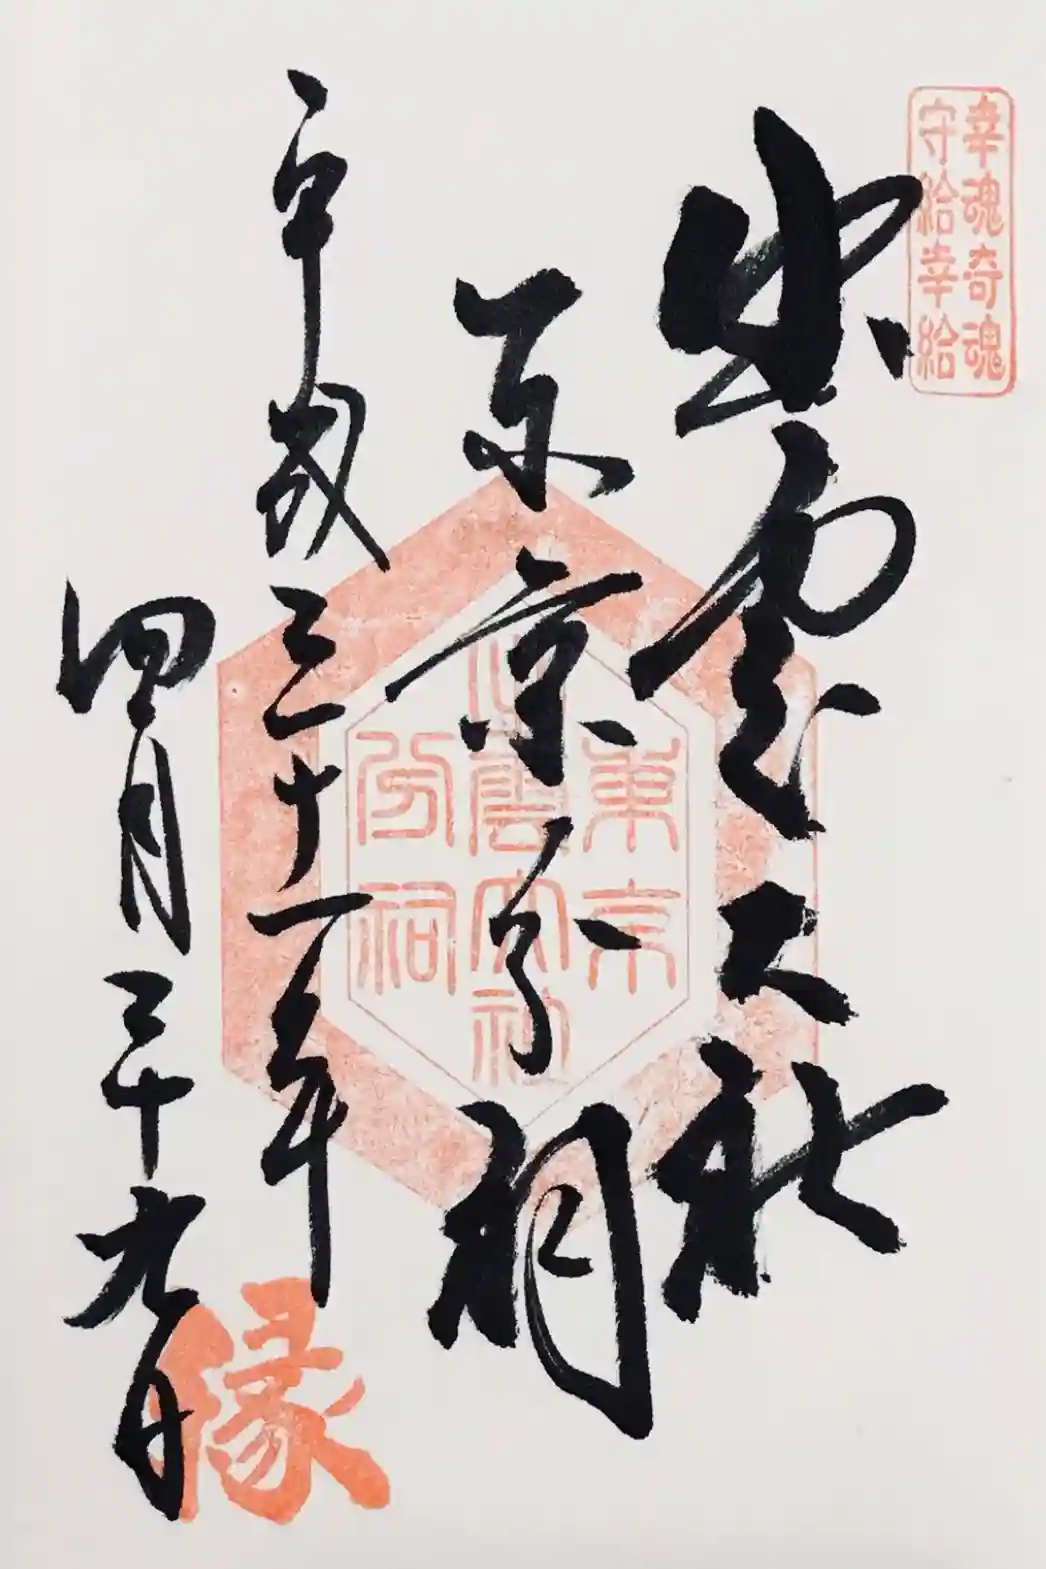 幸魂奇魂
守給幸給
出雲大社
東京分祠
平成三十一年
四月二十九日
東京
出雲大社
分祠
縁